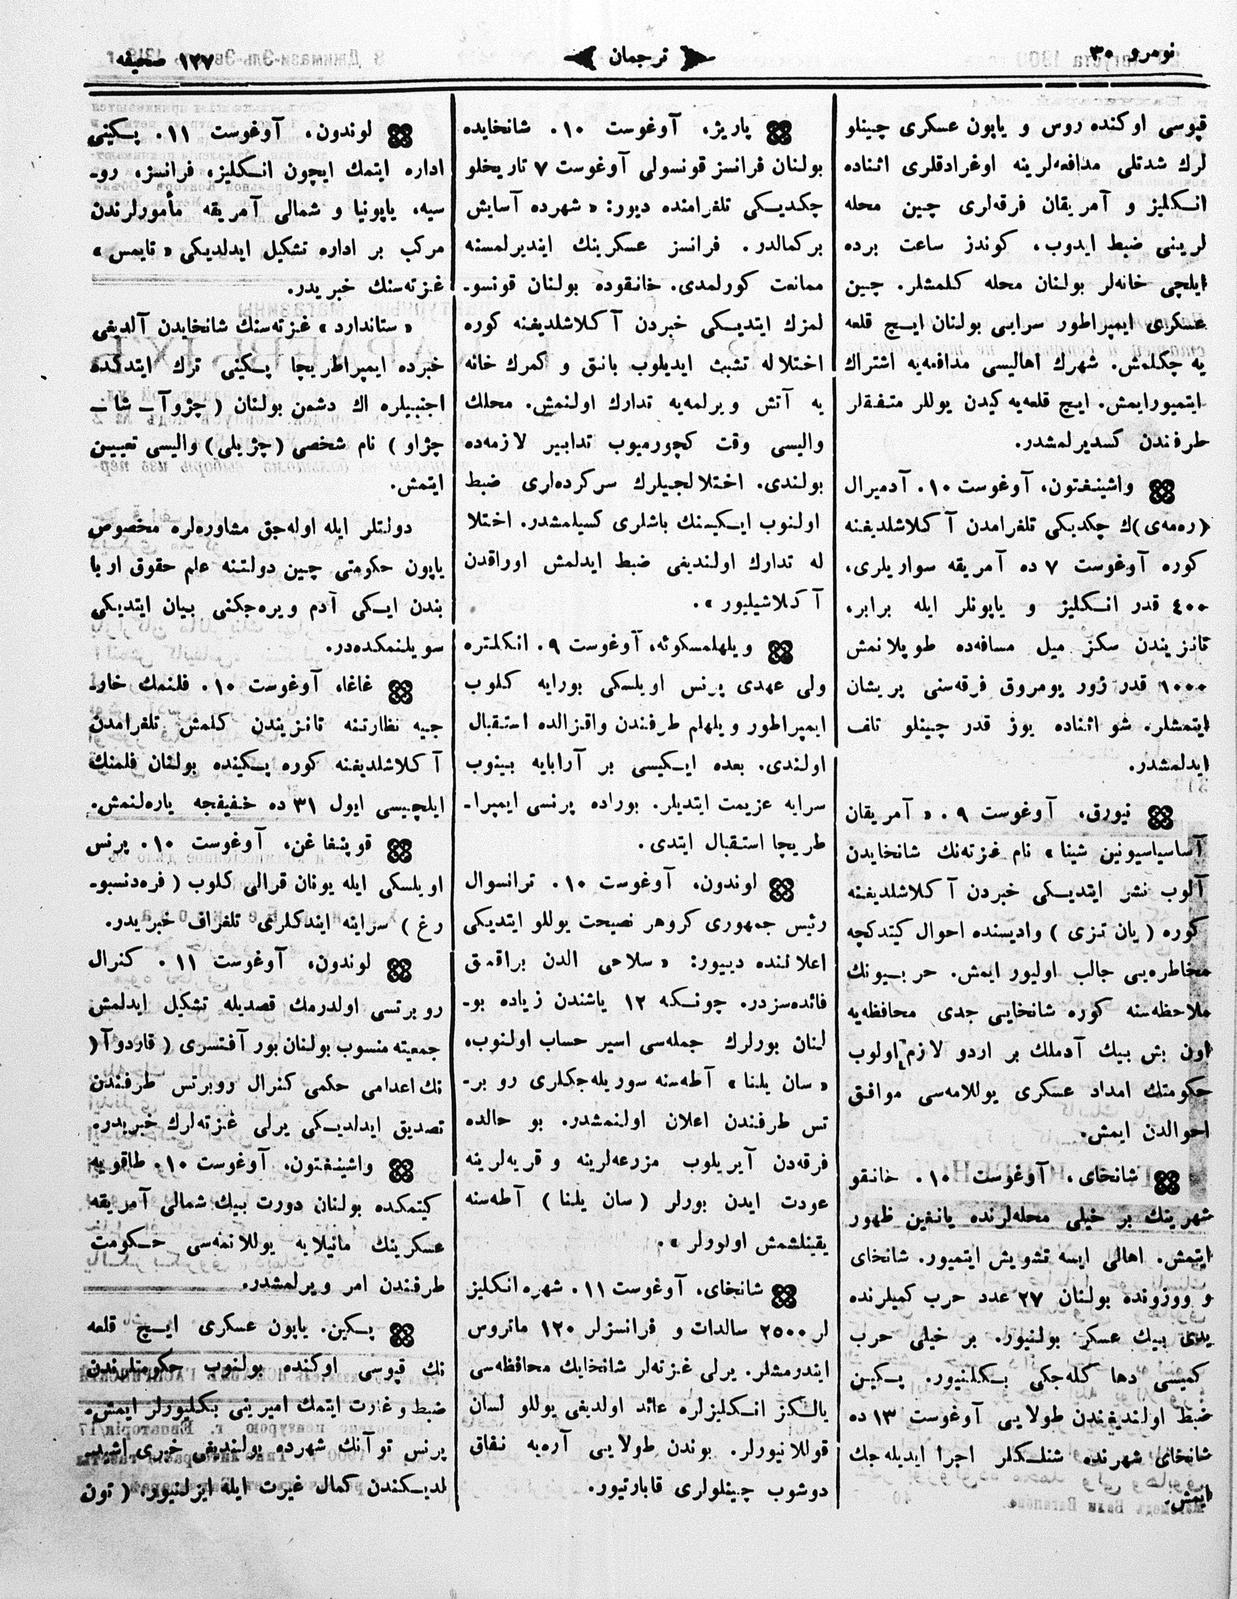 نومرو ٣٠
ترجمان
١٢٧ صحیفه
قپوسی اوکنده روس و یاپون عسکری چینلو
لرك شدتلی مدافعه‌لرینه اوغرادقلری اثناده
انـکلیز و آمریقان فرقه‌لری چین محله
لرینی ضبط ایدوب، کوندز ساعت برده
ایلچی خانه‌لر بولنان محله کلمشلر. چین
عسکری ایمپراطور سرایی بولنان ایچ قلعه
یه چکلمش. شهرك اهالیسی مدافعه‌یه اشتراك
ایتمیورایمش. ایچ قلعه‌یه کیدن یوللر متفقلر
طرفندن کسدیرلمشدر.
واشینغتون، آوغوست ١٠. آدمیرال
(ره‌مه‌ی)ك چکدیکی تلغرامدن آ کلاشلدیغنه
کوره آوغوست ٧ ده آمریقه سواریلری،
٤٠٠ قدر انـکلیز و یاپونلر ایله برابر،
تانزیندن سکز میل مسافه‌ده طوپلانمش
١٠٠٠ قدر زور یومروق فرقه‌سنی پریشان
ایتمشلر. شو اثناده یوز قدر چینلو تلف
ایدلمشدر.
نیورق، آوغوست ٩. « آمریقان
آساسیاسیونین شینا» نام غزته‌نك شانخایدن
آلوب نشر ایتدیـکی خبردن آ کلاشلدیغنه
کوره ( یان تـزی ) وادیسنده احوال کیتدکچه
مخاطره‌یی جالب اولیور ایمش. حربـیونك
ملاحظه‌سنه کوره شانخایی جدی محافظه‌یه
اون بش بیك آدملك بر اردو لازم اولوب
حکومتك امداد عسکری یوللامه‌سی موافق
احوالدن ایمش.
شانخای، آوغوست ١٠. خانقو
شهرینك بر خیلی محله‌لرنده یانغین ظهور
ایتمش. اهالی ایسه تشویش ایتمیور. شانخای
و ووزونده بولنان ٢٧ عدد حرب کمیلرنده
یدی بیك عسکر بولنیور. بر خیلی حرب
کمیسی دها کله‌جکی بـکلنیور. پـکـین
ضبط اولندیغندن طولایی آوغوست ١٣ ده
شانخای شهرنده شنلـکلر اجرا ایدیله‌جك
ایمش.
پاریز، آوغوست ١٠. شانخایده
بولنان فرانسز قونسولی آوغوست ٧ تاریخلو
چکدیـکی تلغرامنده دیور: « شهرده آسایش
برکمالدر. فرانسز عسکرینك ایندیرلمسنه
ممانعت کورلمدی. خانقوده بولنان قونسو‌ـ
لمزك ایتدیـکی خبردن آ کلاشلدیغنه کوره
اختلاله تشبث ایدیلوب بانق و کمرك خانه
یه آتش ویرلمه‌یه تدارك اولنمش. محلك
والیسی وقت کچورمیوب تدابیر لازمه‌ده
بولندی. اختلالجیلرك سرکرده‌لری ضبط
اولنوب ایـکیسنك باشلری کسیلمشدر. اختلا
له تدارك اولندیغی ضبط ایدلمش اوراقدن
آ کلاشیلیور».
ویلهلمسکوئه، آوغوست ٩. انکلتره
ولی عهدی پرنس اویلسکی بورایه کلوب
ایمپراطور ویلهلم طرفندن واقزالده استقبال
اولندی. بعده ایـکیسی بر آرابایه بینوب
سرایه عزیمت ایتدیلر. بوراده پرنسی ایمپرا‌ـ
طریچا استقبال ایتدی.
لوندون، آوغوست ١٠. ترانسوال
رئیس جمهوری کروهر نصیحت یوللو ایتدیکی
اعلاننده دییور: « سلاحی الدن براقمق
فائده‌سزدر. چونـکه ١٢ یاشندن زیاده بو‌ـ
لنان بورلرك جمله‌سی اسیر حساب اولنوب،
« سان یلنا» آطه‌سنه سوریله‌جکلری روبر‌ـ
تس طرفندن اعلان اولنمشدر. بو حالده
فرقه‌دن آیریلوب مزرعه‌لرینه و قریه‌لرینه
عودت ایدن بورلر ( سان یلنا ) آطه‌سنه
یقینلشمش اولورلر».
شانخای، آوغوست ١١. شهره انکلیز
لر ٢٥٠٠ سالدات و فرانسزلر ١٢٠ ماتروس
ایندرمشلر. یرلی غزته‌لر شانخایك محافظه‌سی
یالـکز انـکلیزلره عائد اولدیغی یوللو لسان
قوللانیورلر. بوندن طولایی آره‌یه نفاق
دوشوب چینلولری قابارتیور.
لوندون، آوغوست ١١. پـکینی
اداره ایتمك ایچون انـکلیز، فرانسز، رو‌ـ
سیه، یاپونیا و شمالی آمریقه مأمورلرندن
مرکب بر اداره تشکیل ایدلدیکی « تایمس»
غزته‌سنك خبریدر.
« ستاندارد» غزته‌سنك شانخایدن آلدیغی
خبرده ایمپراطریچا پـکینی ترك ایتدکده
اجنبیلره اك دشمن بولنان ( چژوآ ـ شا ـ
چژاو ) نام شخصی (چژیلی) والیسی تعیین
ایتمش.
دولتلر ایله اوله‌جق مشاوره‌لره مخصوص
یاپون حکومتی چین دولتنه علم حقوق اربا
بندن ایـکی آدم ویره‌جکنی بیان ایتدیکی
سویلنمکده‌در.
غاغا، آوغوست ١٠. فلمنك خار‌ـ
جیه نظارتنه تانزیندن کلمش تلغرامدن
آ کلاشلدیغنه کوره پـکینده بولنان فلمنك
ایلچیسی ایول ٣١ ده خفیفجه یاره‌لنمش.
قوپنغاغن، آوغوست ١٠. پرنس
اویلسکی ایله یونان قرالی کلوب ( فره‌دنسبو‌ـ
رغ ) سراینه ایندکلری تلغراف خبریدر.
لوندون، آوغوست ١١. کنرال
روبرتسی اولدرمك قصدیله تشکیل ایدلمش
جمعیته منسوب بولنان بور آفتسری ( قاردوآ )
نك اعدامی حکمی کنرال روبرتس طرفندن
تصدیق ایدلدیـکی یرلی غزته‌لرك خبریدر.
واشینغتون، آوغوست ١٠. طاقویه
کیتمکده بولنان دورت بیك شمالی آمریقه
عسکرینك مانیلایه یوللانمه‌سی حکومت
طرفندن امر ویرلمشدر.
پـکین. یاپون عسکری ایچ قلعه
نك قپوسی اوکنده بولنوب حکومتلرندن
ضبط و غارت ایتمك امیرینی بـکلیورلر ایمش.
پرنس توآنك شهرده بولندیغی خبری اشید‌ـ
لدیکندن کمال غیرت ایله ایزلنیور. ( تون